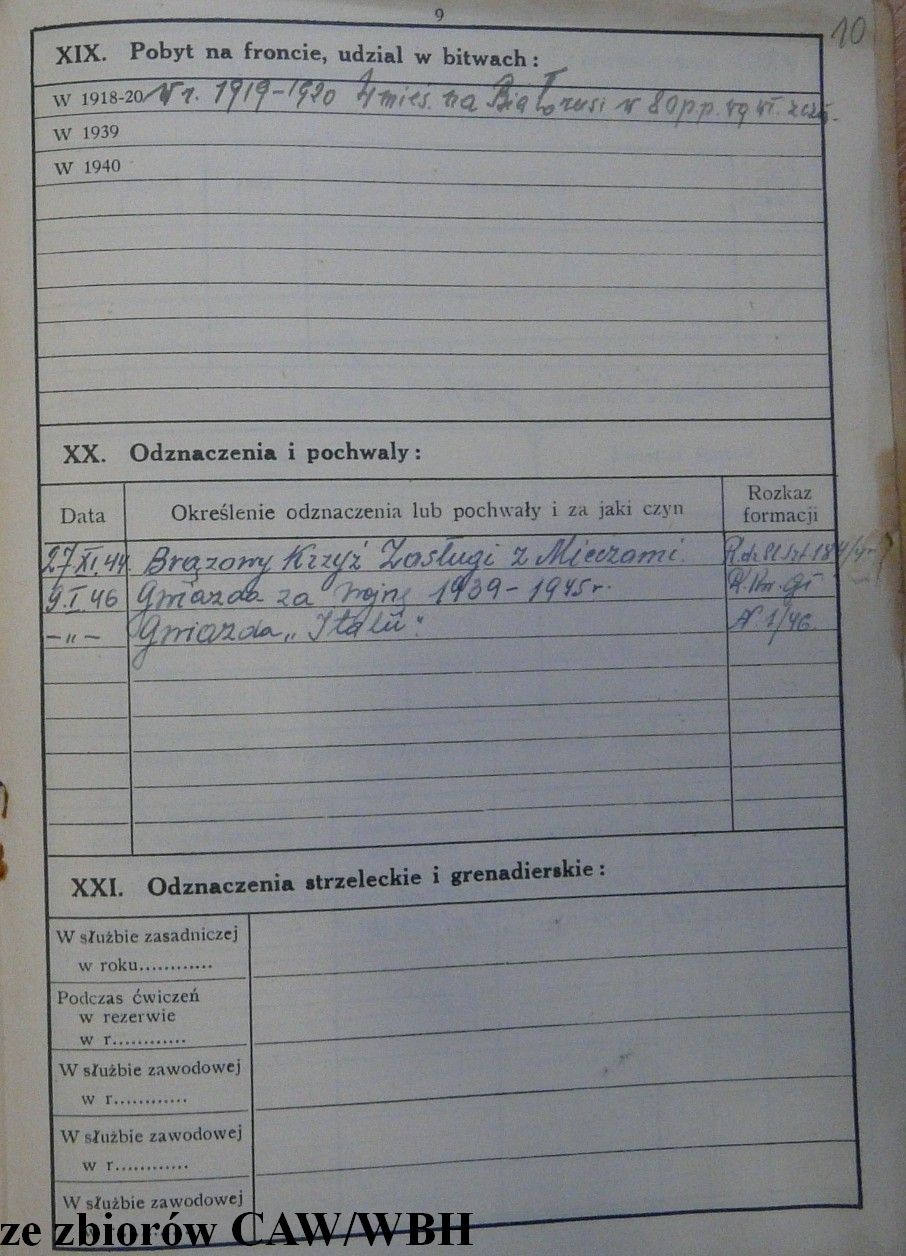 9
10
XIX. Pobyt na froncie, udział w bitwach :
W 1918-20 W r. 1919-1920 4 mies. na Białorusi w 80 pp. wg wł. zezn.
W 1939
W 1940
XX. Odznaczenia i pochwały :
Data Określenie odznaczenia lub pochwały i za jaki czyn Rozkaz formacji
27.XI.44. Brązowy Krzyż Zasługi z Mieczami.
9.I.46 Gwiazda za Wojnę 1939-1945 r.
-„- Gwiazda „Italii". N. 1/46.
XXI. Odznaczenia strzeleckie i grenadierskie :
W służbie zasadniczej
w roku............
Podczas ćwiczeń
w rezerwie
w r............
W służbie zawodowej
w r............
W służbie zawodowej
w r............
W służbie zawodowej
ze zbiorów CAW/WBH